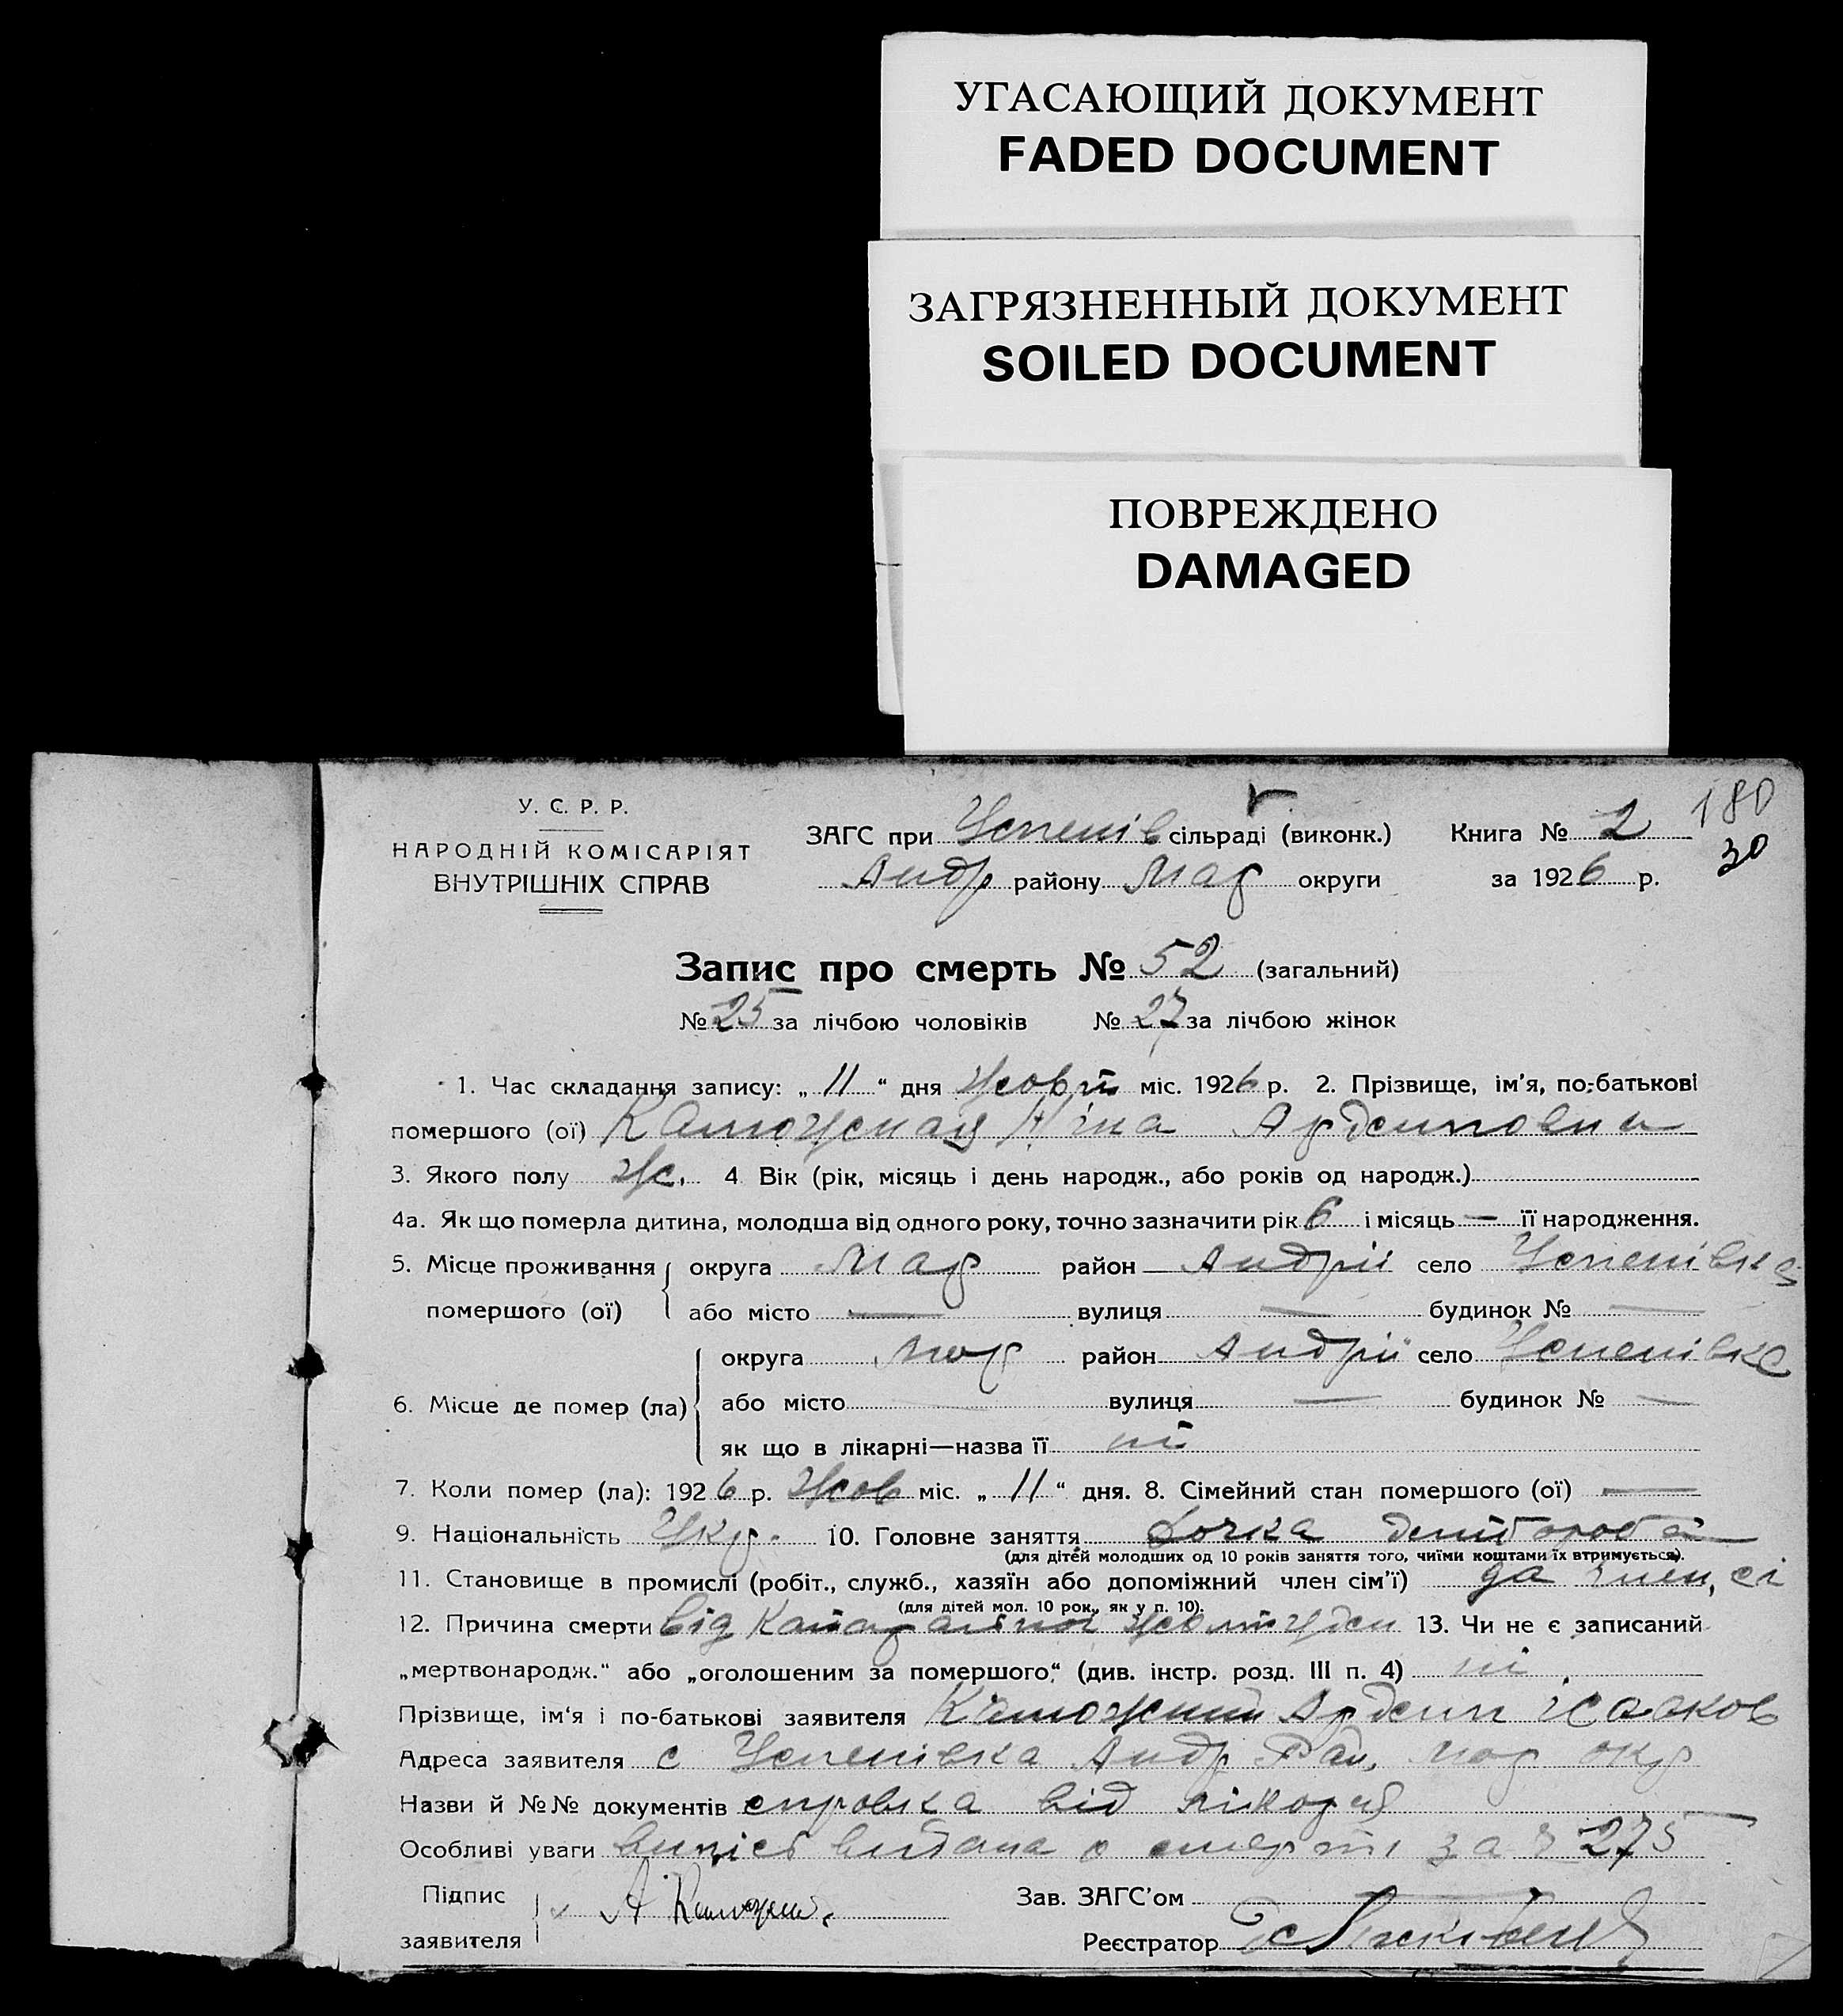 УГАСАЮЩИЙ ДОКУМЕНТ
FADED DOCUMENT
ЗАГРЯЗНЕННЫЙ ДОКУМЕНТ
SOILED DOCUMENT
ПОВРЕЖДЕНО
DAMAGED
180
30
У. С. Р. Р.
НАРОДНІЙ КОМІСАРІЯТ
ВНУТРІШНІХ СПРАВ
ЗАГС при Успенів сільраді (виконк.) Книга № 2
Андр району Мар округи за 1926 р.
Запис про смерть № 52 (загальний)
№ 25 за лічбою чоловіків № 27 за лічбою жінок
1. Час складання запису: „ 11 “ дня Жовт міс. 1926 р. 2. Прізвище, ім'я, по-батькові
помершого (ої) Ніна
3. Якого полу Ж. 4 Вік (рік, місяць і день народж., або років од народж.)
4а. Як що померла дитина, молодша від одного року, точно зазначити рік 6 і місяць — її народження.
5. Місце проживання помершого (ої) округа Мар район Андрії село Успенівка
або місто — вулиця — будинок № —
6. Місце де помер (ла) округа Мар район Андрії село Успенівка
або місто вулиця — будинок № —
як що в лікарні—назва її ні
7. Коли помер (ла): 1926 р. Жов міс. „ 11 “ дня. 8. Сімейний стан помершого (ої) —
9. Національність Укр. 10. Головне заняття Дочка
(для дітей молодших од 10 років заняття того, чиїми коштами їх втримується).
11. Становище в промислі (робіт., служб., хазяїн або допоміжний член сім'ї) член, сі
(для дітей мол. 10 рок., як у п. 10).
12. Причина смерти від 13. Чи не є записаний
„мертвонародж.“ або „оголошеним за помершого“ (див. інстр. розд. III п. 4) ні
Прізвище, ім'я і по-батькові заявителя Ісааков
Адреса заявителя с Успенівка Андр Рай, Мар окр
Назви й №№ документів справка від лікаря
Особливі уваги випісь видана о смерти за № 275
Підпис заявителя
Зав. ЗАГС'ом
Реєстратор